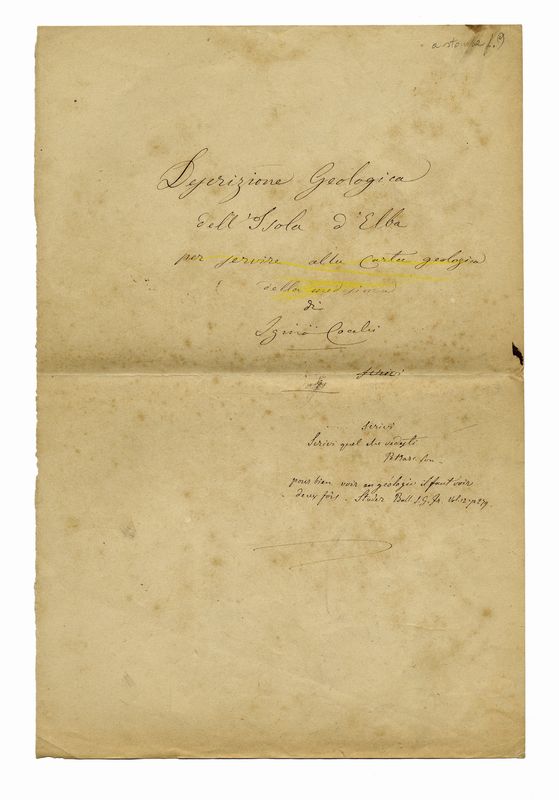 a stampa
Descrizione Geologica
dell'Isola d'Elba
per servire alla Carta geologica
della medesima
di
Iginio Cocchi
scrivi
Scrivi quel che vedesti
pour bien voir en géologie il faut voir
deux fois - Studer Bull. S. G. Fr.